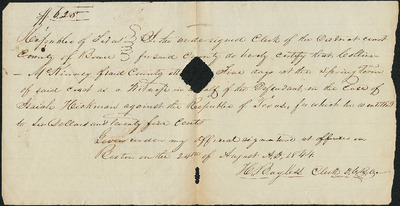 625
Republic of Texas I the undersigned Clerk of the District court
County of Bowie for said County do hereby certify that Collin
McKinney of said County Five days at the Spring Term
of said court as a Witness in of the Defendant in the Case of
Hickman against the Republic of Texas, for which he is entitled
to Six Dollars and twenty five Cents
Given under my Official signature at office in
Boston on the 24th of August A.D. 1844
H. Bayless Clerk